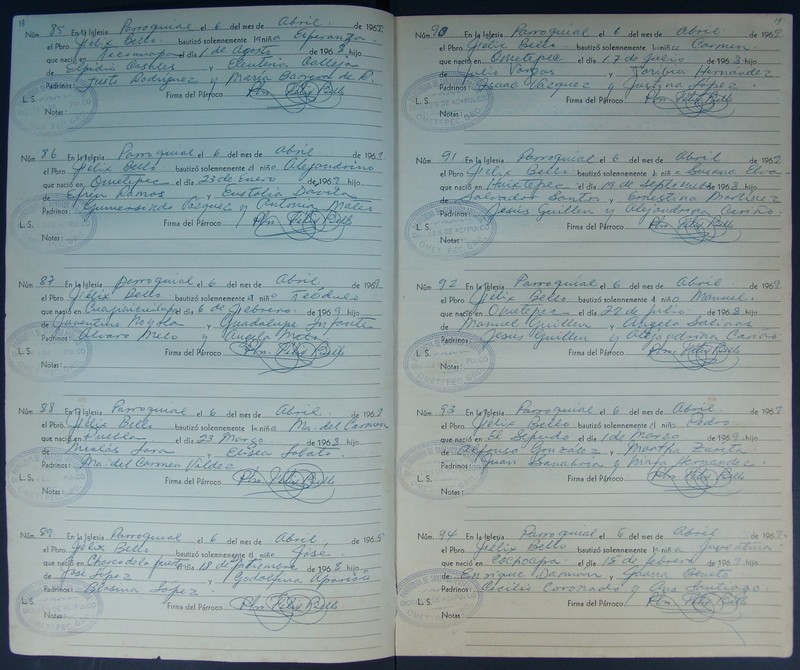 18
Núm. 85 En la Iglesia Parroquial el 6 del mes de Abril de 196
el Pbro. Félix Bello bautizó solemnemente l niñ a Esperanza
que nació en el día 1 de Agosto de 1968 hijo
de Elpidio y Eleuteria Calleja
Padrinos: Justo Rodríguez y María Barrera de R.
L. S. Firma del Párroco Pbro. Félix Bello
Notas:
Núm. 86 En la Iglesia Parroquial el 6 del mes de Abril de 1969
el Pbro. Félix Bello bautizó solemnemente l niño Alejandrino
que nació en Ometepec el día 23 de Enero de 1969 hijo
de Efrén Ramos y Eustolia Dávila
Padrinos: Gumersindo Vázquez y Antonia Mates
L. S. Firma del Párroco Pbro. Félix Bello
Notas:
Núm. 87 En la Iglesia Parroquial el 6 del mes de Abril de 1969
el Pbro. Félix Bello bautizó solemnemente l niño Teódulo
que nació en Cuajinicuilapa el día 6 de Febrero de 1969 hijo
de Juventino Noyola y Guadalupe Infante
Padrinos: Alvaro Melo y Angela
L. S. Firma del Párroco Pbro. Félix Bello
Notas:
Núm. 88 En la Iglesia Parroquial el 6 del mes de Abril de 1969
el Pbro. Félix Bello bautizó solemnemente l niña Ma. del Carmen
que nació en Puebla el día 23 Marzo de 1968 hijo
de Nicolás Lara y Elisea Lobato
Padrinos: Ma. del Carmen Valdez
L. S. Firma del Párroco Pbro. Félix Bello
Notas:
Núm. 89 En la Iglesia Parroquial el 6 del mes de Abril de 1969
el Pbro. Félix Bello bautizó solemnemente l niño José
que nació en el día 18 de de 1968 hijo
de José López y Godolfina Aparicio
Padrinos: López
L. S. Firma del Párroco Pbro. Félix Bello
Notas:
19
Núm. 90 En la Iglesia Parroquial el 6 del mes de Abril de 1969
el Pbro. Félix Bello bautizó solemnemente l niña Carmen
que nació en Ometepec el día 17 de Julio de 1968 hijo
de Julio Vargas y Toribia Hernández
Padrinos: Isaac Vázquez y Justina López
L. S. Firma del Párroco Pbro. Félix Bello
Notas:
Núm. 91 En la Iglesia Parroquial el 6 del mes de Abril de 1969
el Pbro. Félix Bello bautizó solemnemente l niña Susana Elva
que nació en Huixtepec el día 19 de Septiembre de 1968 hijo
de Salvador Santos y Ernestina Martínez
Padrinos: Jesús Guillén y Alejandrina
L. S. Firma del Párroco Pbro. Félix Bello
Notas:
Núm. 92 En la Iglesia Parroquial el 6 del mes de Abril de 1969
el Pbro. Félix Bello bautizó solemnemente l niño Manuel
que nació en Ometepec el día 22 de Julio de 1968 hijo
de Manuel Guillén y Angela Salinas
Padrinos: Jesús Guillén y Alejandrina
L. S. Firma del Párroco Pbro. Félix Bello
Notas:
Núm. 93 En la Iglesia Parroquial el 6 del mes de Abril de 1969
el Pbro. Félix Bello bautizó solemnemente l niño Pedro
que nació en El el día 1 de Marzo de 1969 hijo
de Alfonso González y Martha Zurita
Padrinos: Juan Sanabria y María Hernández
L. S. Firma del Párroco Pbro. Félix Bello
Notas:
Núm. 94 En la Iglesia Parroquial el 6 del mes de Abril de 196
el Pbro. Félix Bello bautizó solemnemente l niña Juventina
que nació en Cochoapa el día 15 de febrero de 1969 hijo
de Enrique Damián y Benito
Padrinos: Cecilio Coronado y Eva Santiago
L. S. Firma del Párroco Pbro. Félix Bello
Notas: